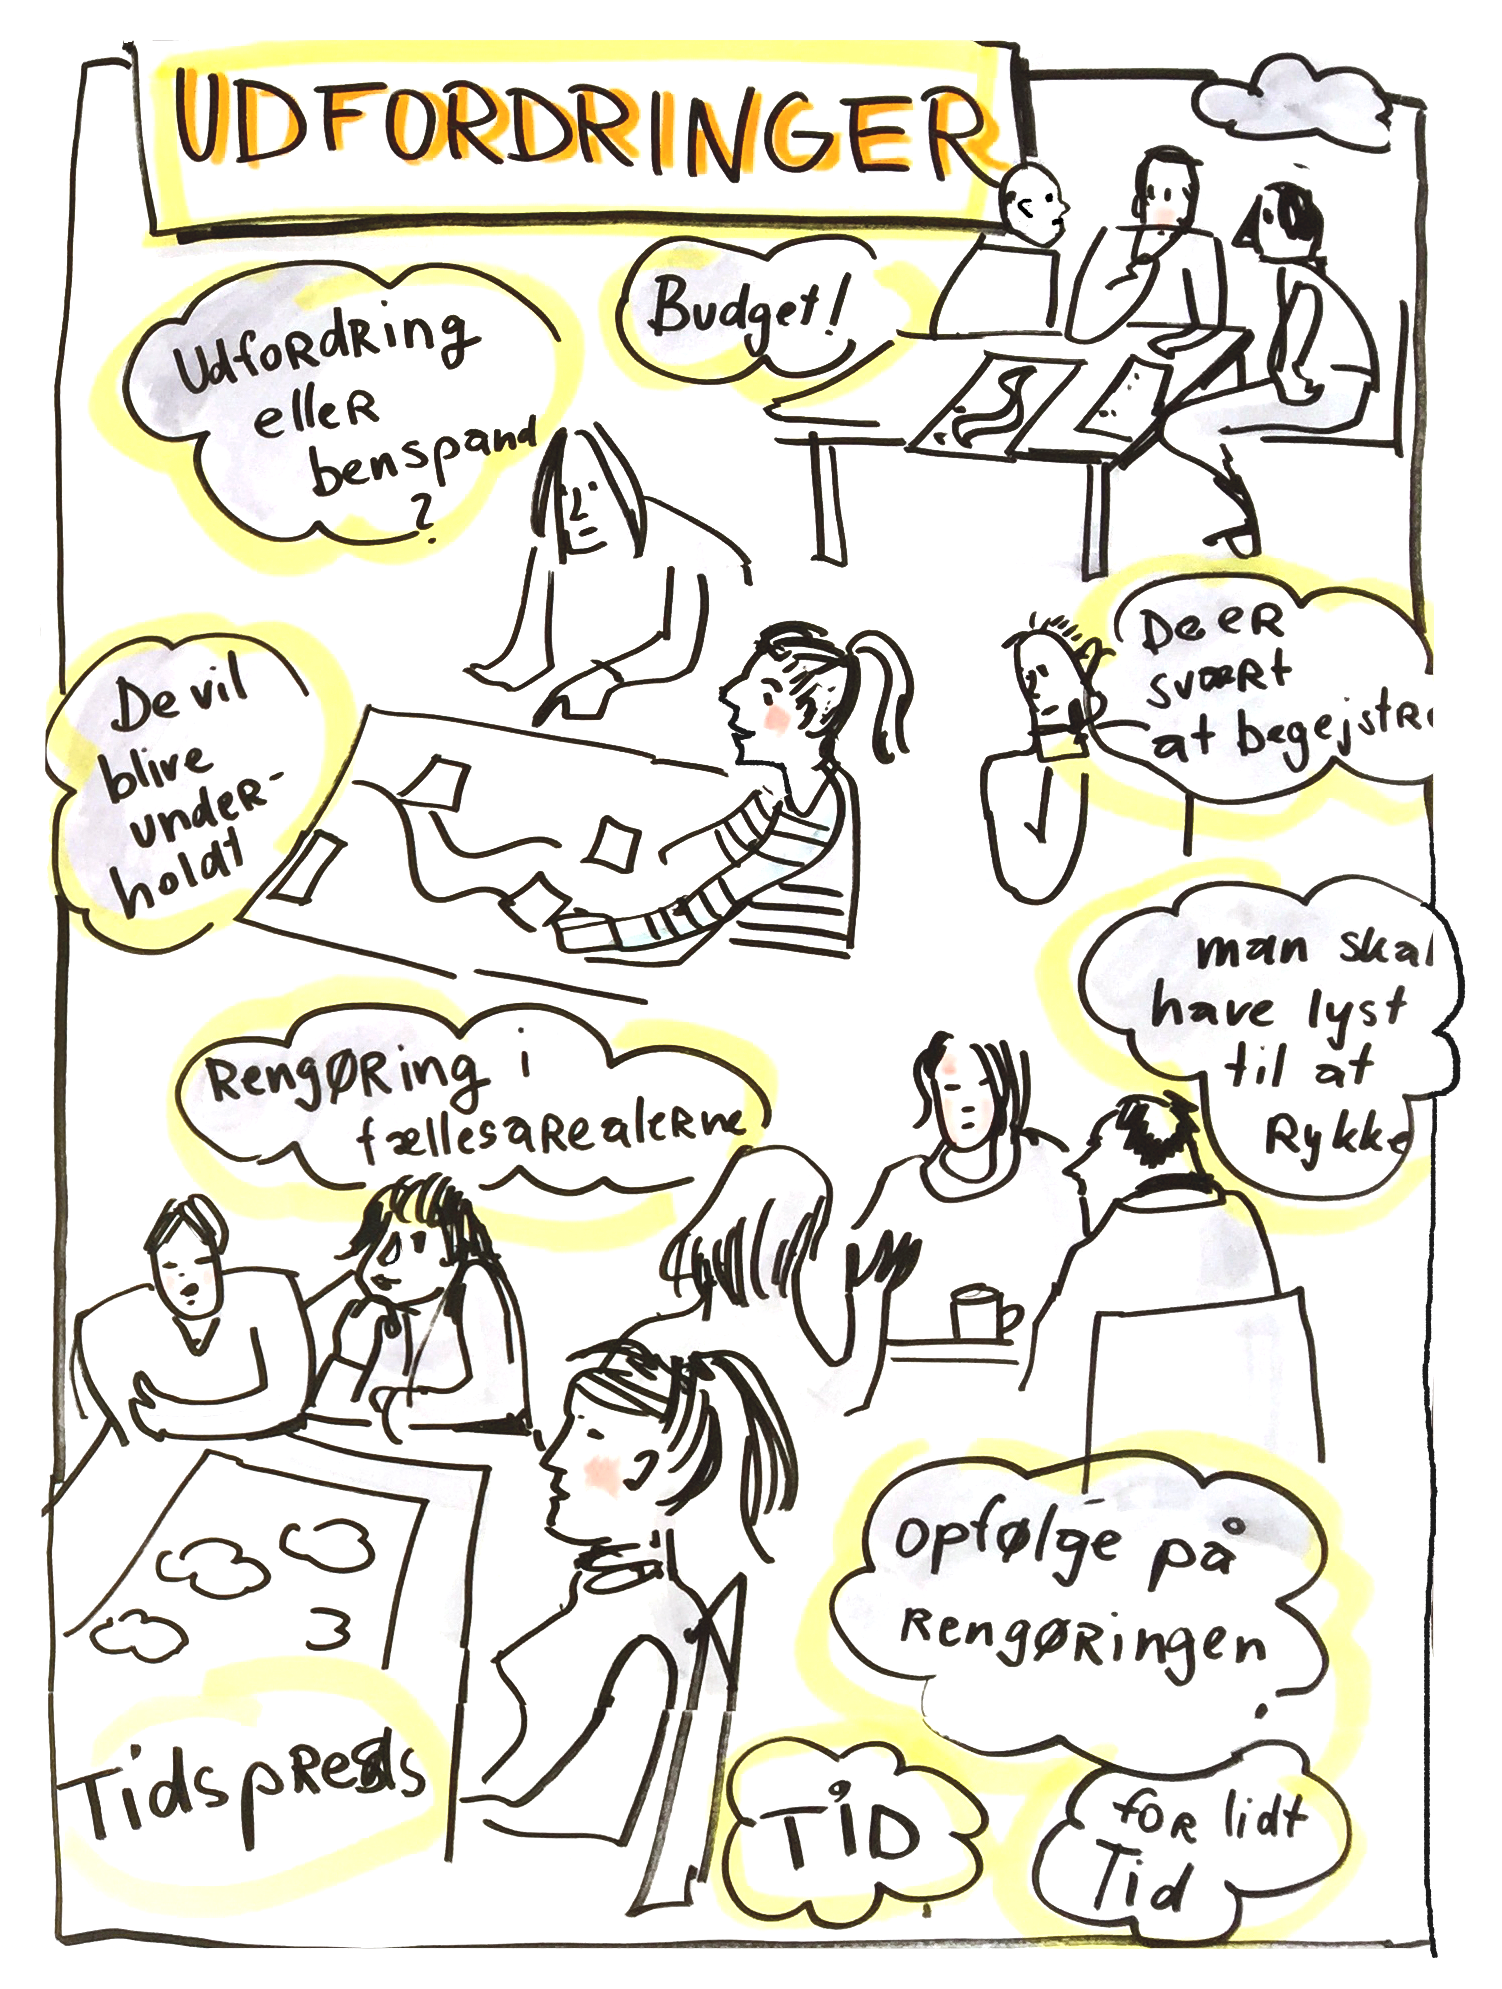 UDFORDRINGER
Udfordring
eller
benspænd
?
Budget!
De vil
blive
under-
holdt
De er
svært
at begejstre
man skal
have lyst
til at
Rykke
Rengøring i
fællesarealerne
Opfølge på
Rengøringen
Tidspres
TID
for lidt
Tid